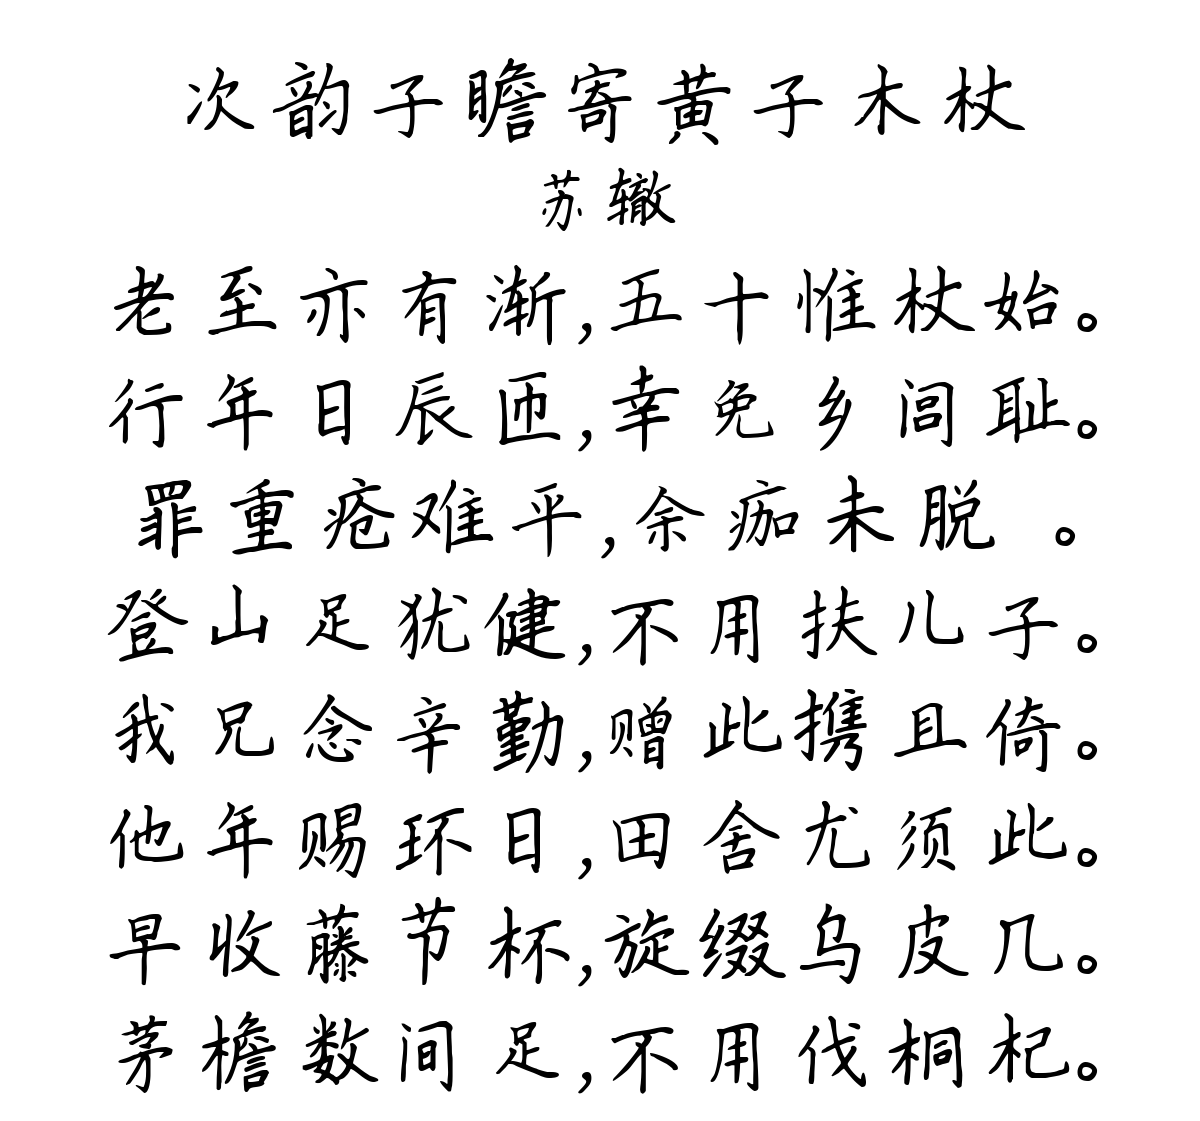 次韵子瞻寄黄子木杖
苏辙
老至亦有渐,五十惟杖始。
行年日辰匝,幸免乡闾耻。
罪重疮难平,余痂未脱 。
登山足犹健,不用扶儿子。
我兄念辛勤,赠此携且倚。
他年赐环日,田舍尤须此。
早收藤节杯,旋缀乌皮几。
茅檐数间足,不用伐桐杞。